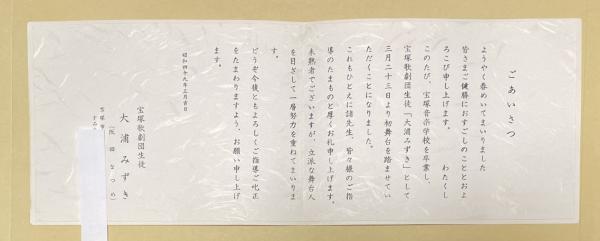 ごあいさつ
ようやく春めいてまいりました
皆さまご健勝におすごしのこととおよ
ろこび申し上げます。　わたくし
このたび、宝塚音楽学校を卒業し、
宝塚歌劇団生徒「大浦みずき」として
三月二十三日より初舞台を踏ませてい
ただくことになりました。
これもひとえに諸先生、皆々様のご指
導のたまものと厚くお礼申し上げます。
未熟者でございますが、立派な舞台人
を目ざして一層努力を重ねてまいりま
す。
どうぞ今後ともよろしくご指導ご叱正
をたまわりますよう、お願い申し上げ
ます。
昭和四十九年三月吉日
宝塚歌劇団生徒
大浦みずき
（阪田なつめ）
宝塚市